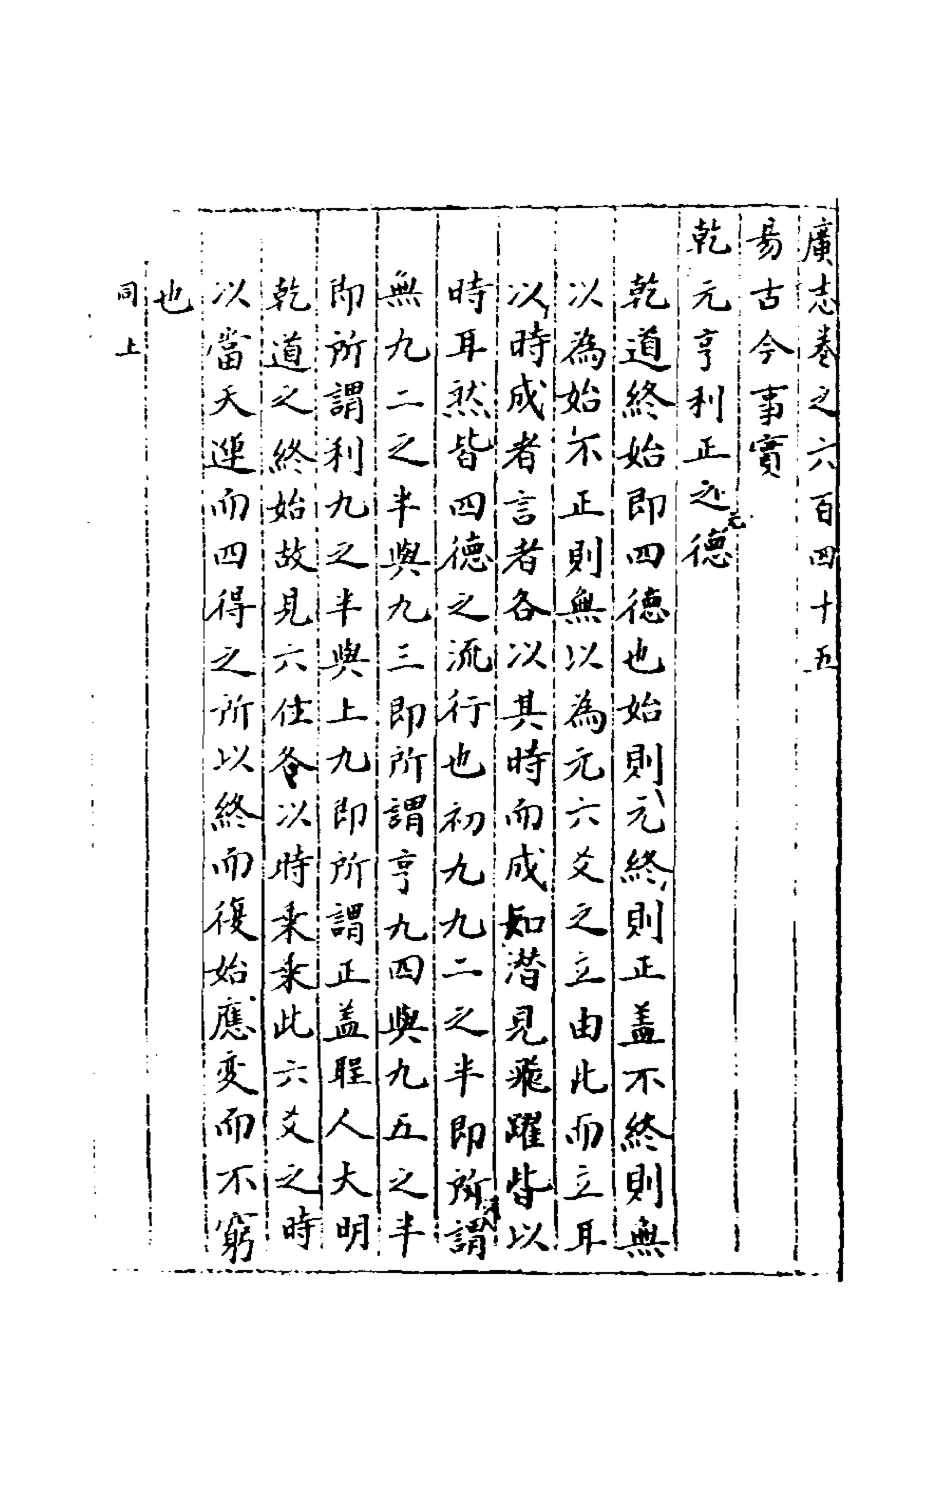 廣志卷之六百四十五
易古今事實
乾元亨利正之德
乾道終始即四德也始則元終則正盖不終則無
以為始不正則無以為元六爻之立由此而立耳
以時成者言者各以其時而成如潜見飛躍皆以
時耳然皆四德之流行也初九九二之半即所謂
無九二之半與九三即所謂亨九四與九五之半
即所謂利九之半與上九即所謂正盖聖人大明
乾道之終始故見六位各以時乗乗此六爻之時
以當天運而四得之所以終而復始應变而不窮
也
同上